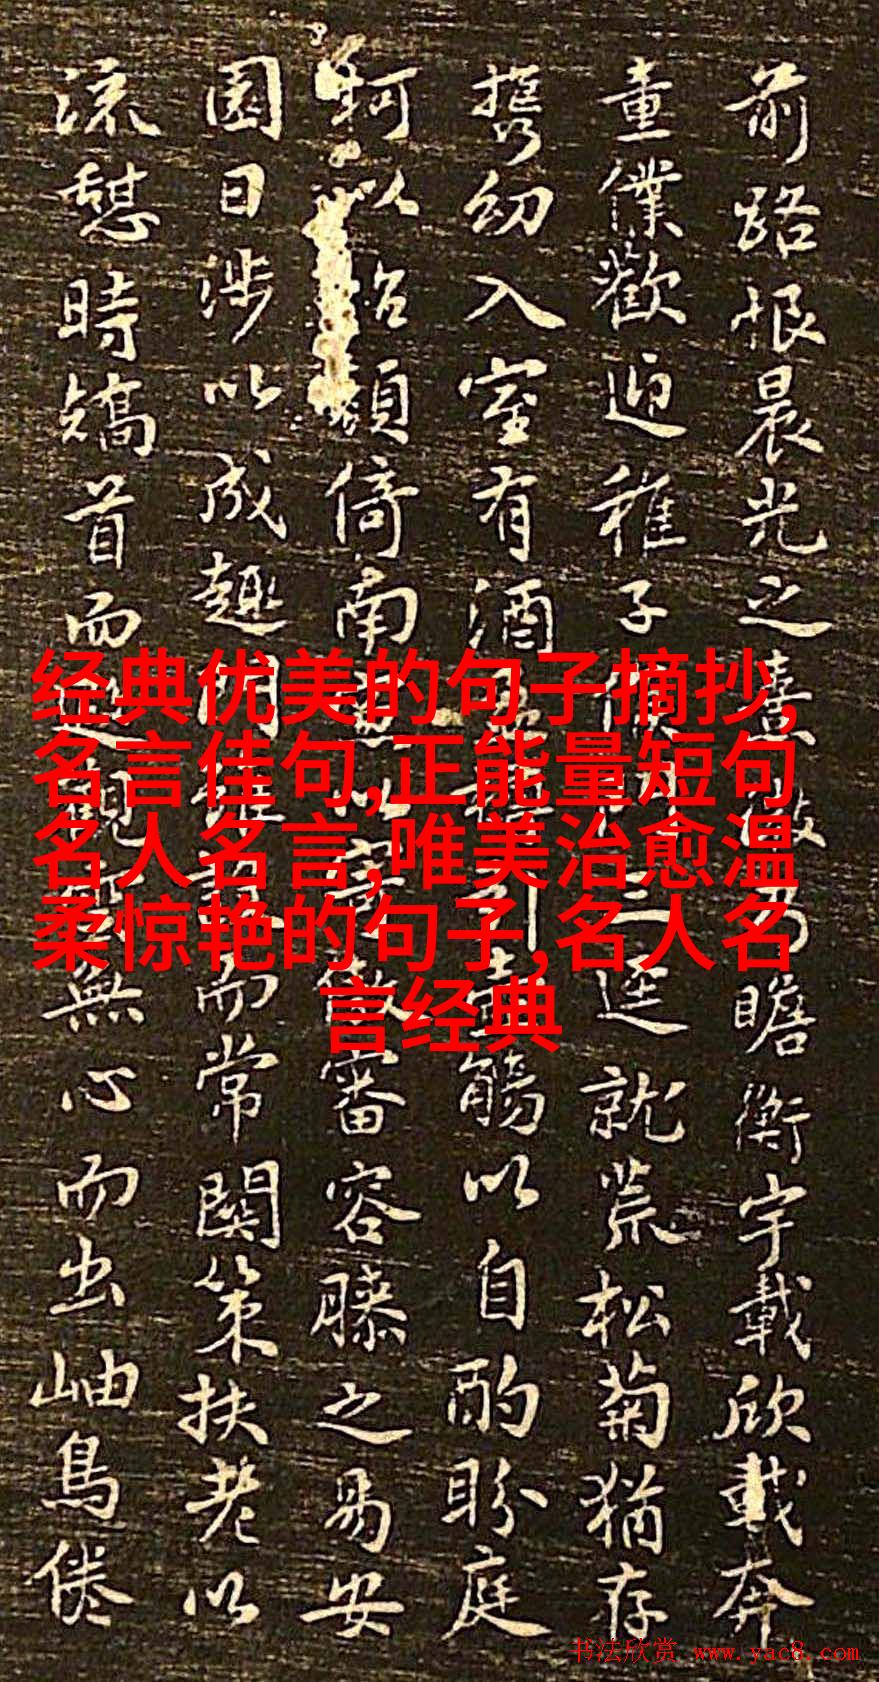 前路恨晨光之熹微乃瞻衡宇載欣載奔
童僕歡迎稚子候門三逕就荒松菊猶存
携幼入室有酒盈樽引壺觴以自酌盼庭
柯以怡顏倚南窓以寄傲審容膝之易安
園日涉以成趣門雖設而常關策扶老以
流憩時矯首而遐觀雲無心而出岫鳥倦
经典优美的句子摘抄,
名言佳句,正能量短句
名人名言,唯美治愈温
柔惊艳的句子,名人名
言经典
书法欣赏 www.yac8.com